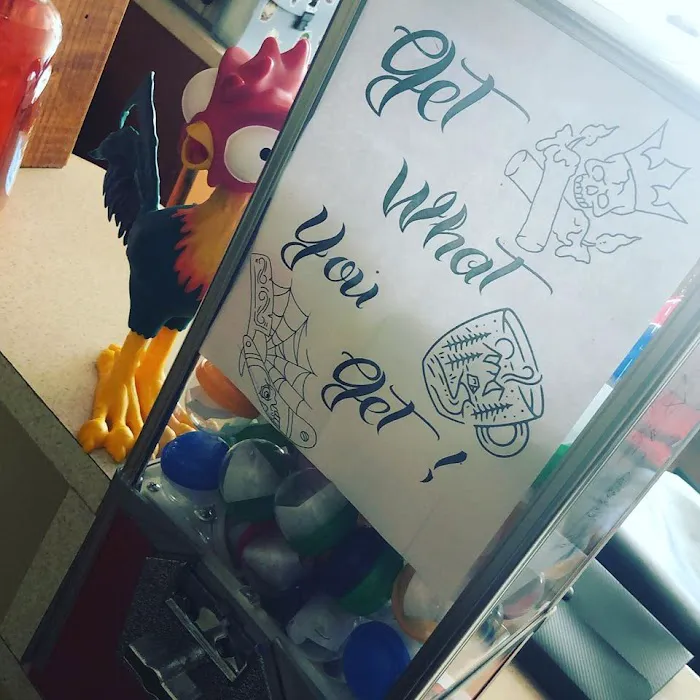 Get
What
You
Get!